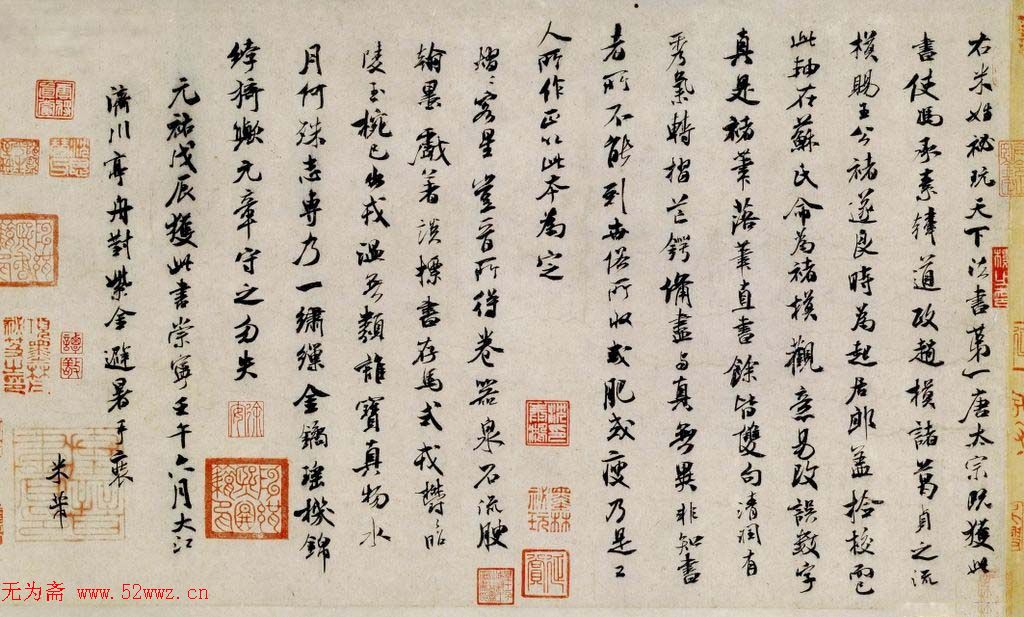 右米姓秘玩天下法書第一唐太宗既獲此
書使馮承素韓道政趙模諸葛貞之流
模賜王公褚遂良時為起居郎蓋撿校而已
此軸在蘇氏命為褚模觀意易改誤數字
真是褚筆落筆直書餘皆雙勾清潤有
秀氣轉摺芒鍔備盡與真無異非知書
者所不能到世俗所收或肥或瘦乃是工
人所作正以此本為定
熠熠客星豈晉所得卷器泉石流腴
翰墨戲著談標書存馬式戎欝昭
陵玉椀已出戎溫無類誰寶真物水
月何殊志専乃一繡繅金鐍瑶機錦
綷猗歟元章守之勿失
元祐戊辰獲此書崇寧壬午六月大江
濟川亭舟對紫金避暑手裝
米芾
无为斋 www.52wwz.cn